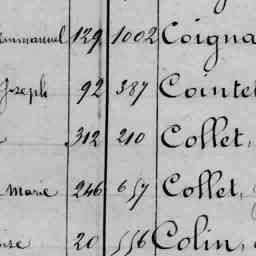 Emmanuel 129 1002 Coigna
Joseph 92 387 Cointe
312 210 Collet,
Marie 246 657 Collet,
20 556 Colin,